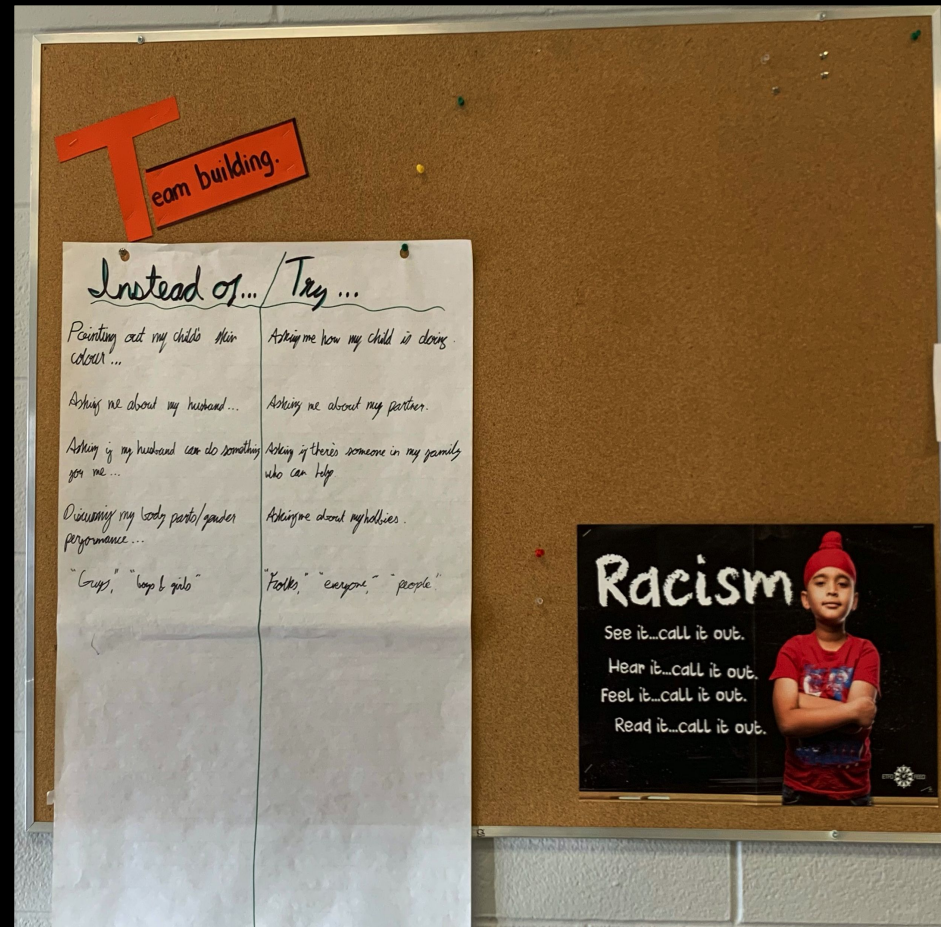 Team building.
Instead of... / Try...
Pointing out my child's skin
colour...
Asking me how my child is doing.
Asking me about my husband...
Asking me about my partner.
Asking if my husband can do something
for me...
Asking if there's someone in my family
who can help
Discussing my body parts/gender
performance...
Asking me about my hobbies.
"Guys," "boys & girls"
"Folks," "everyone," "people"
Racism
See it...call it out.
Hear it...call it out.
Feel it...call it out.
Read it...call it out.